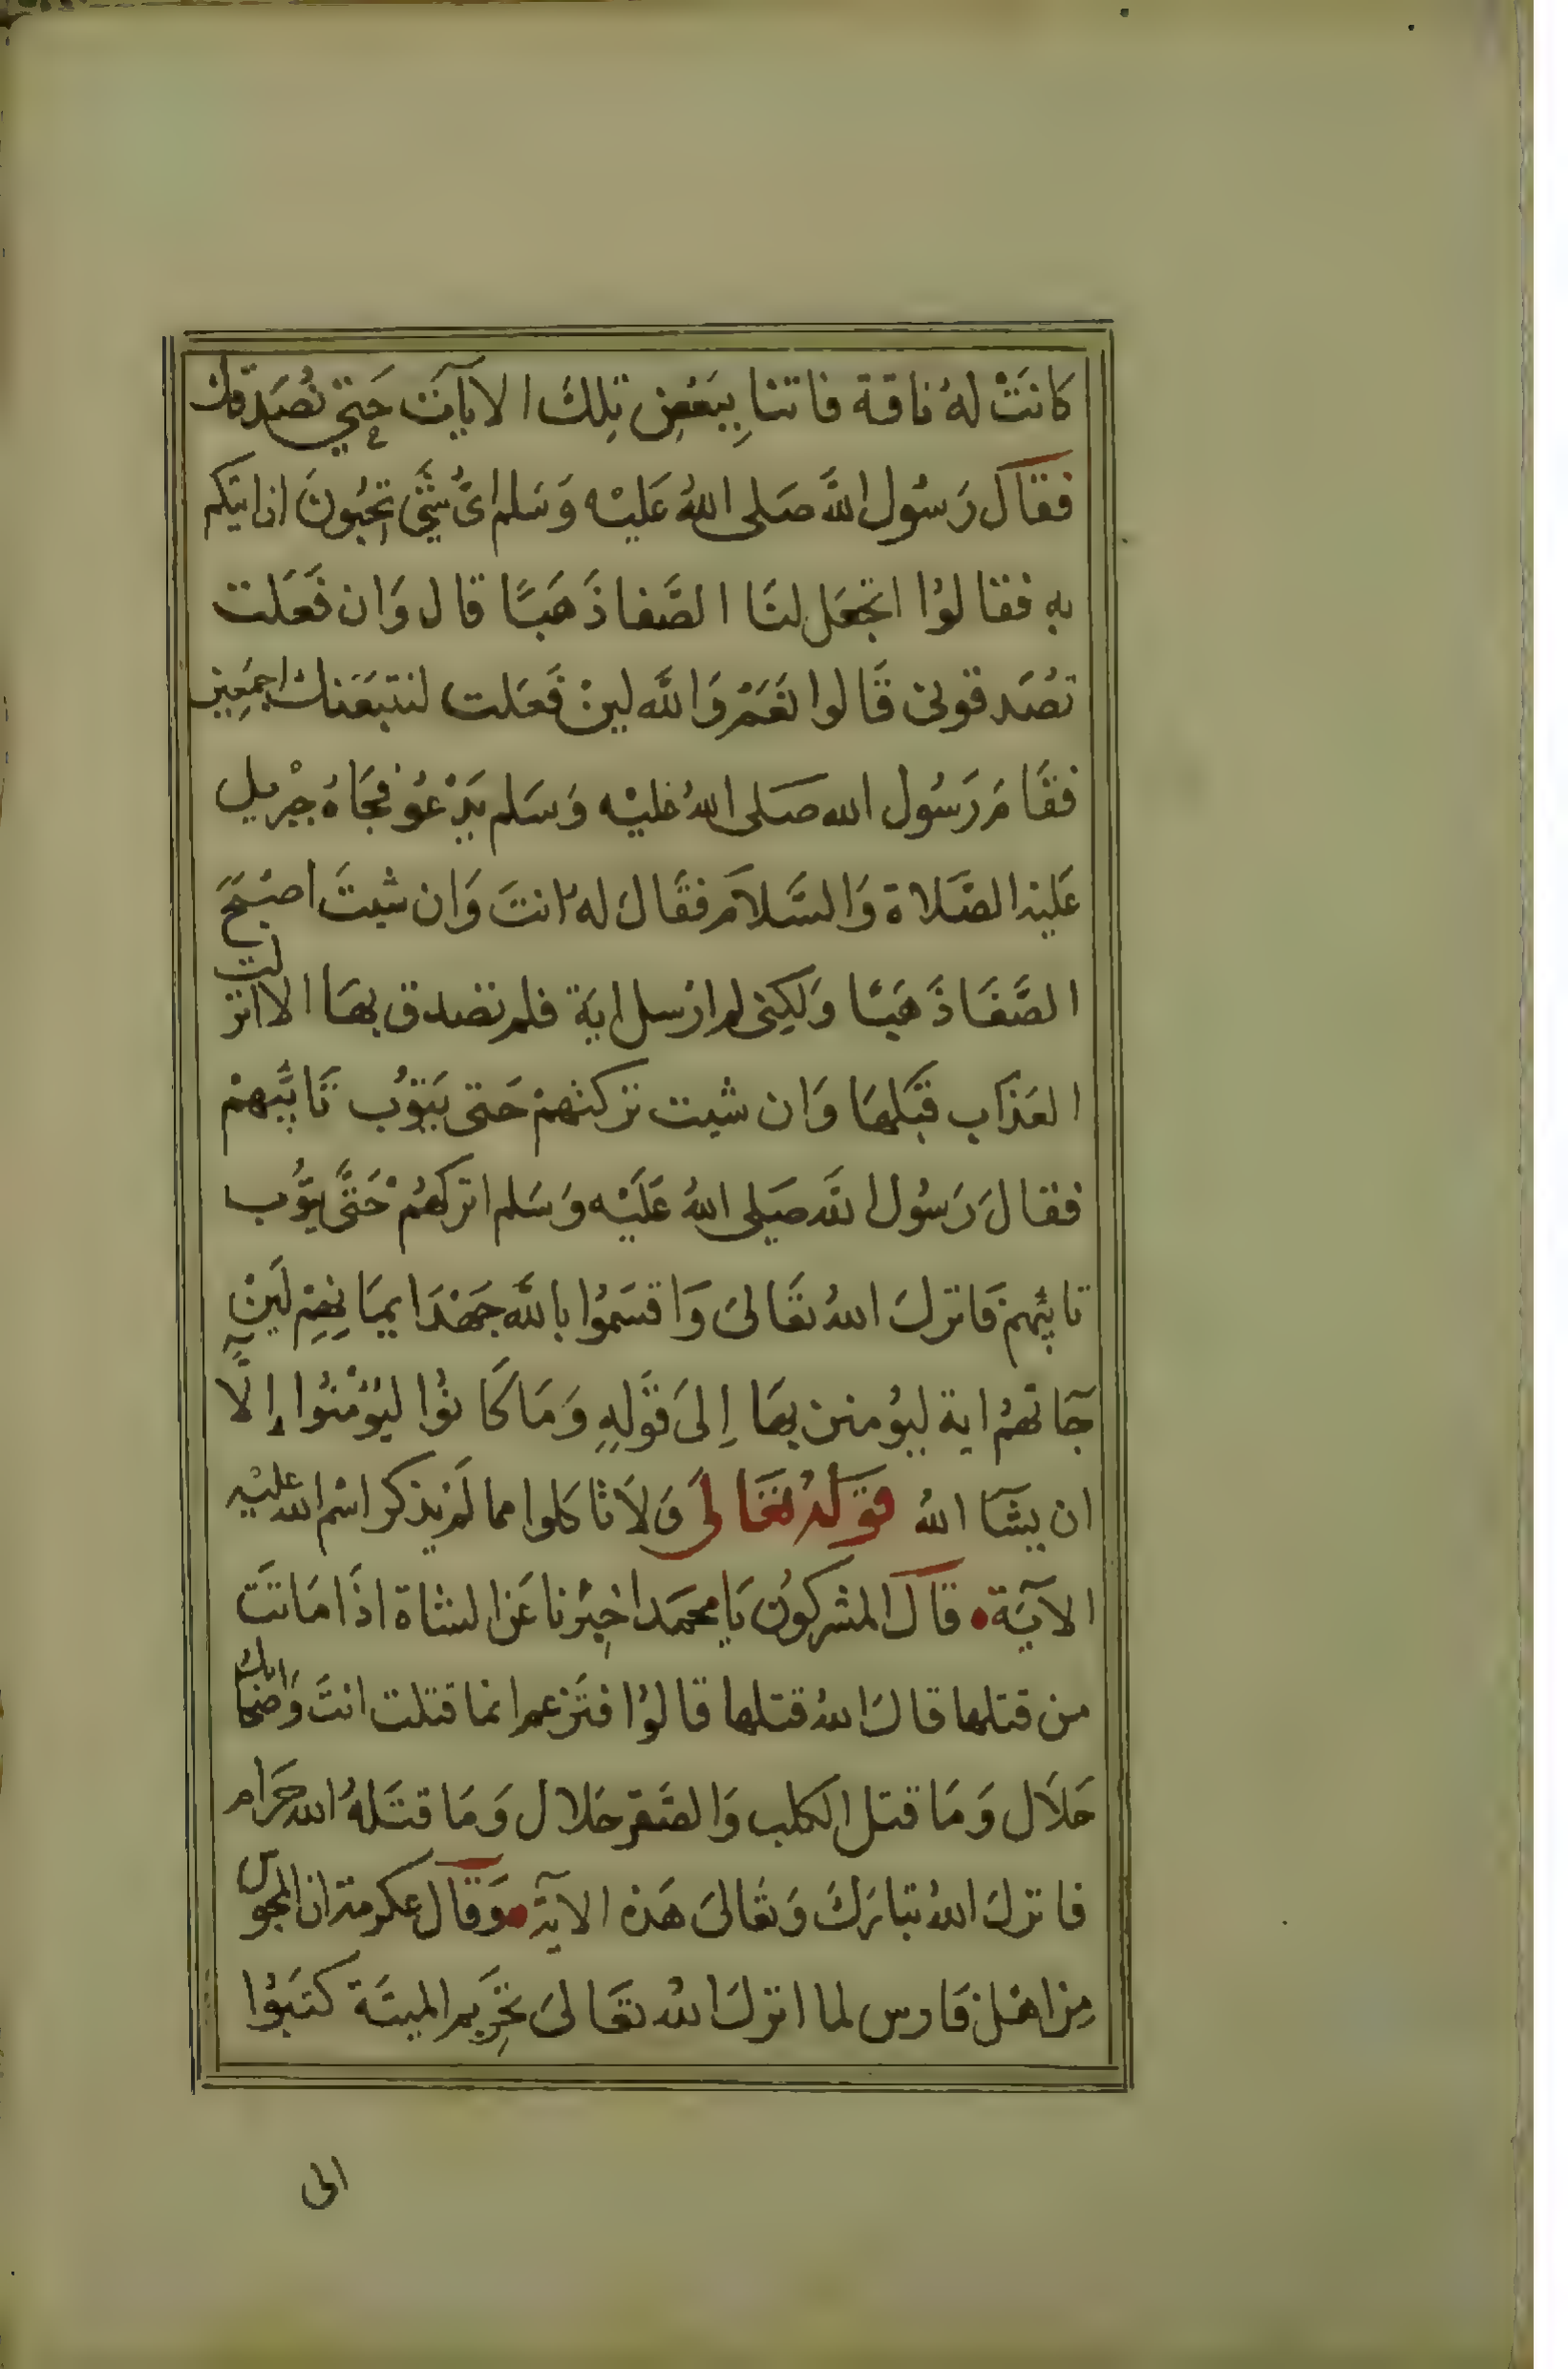 كانَتْ لهُ ناقة فاتنا بِبَعْضِ تِلكَ الايآت حَتي نُصَدقك
فقالَ رَسُول اللَّه صَلى اللهُ عَليْه وَسَلم اىُّ شَّيَ تحِبُونَ ان اتيكم
به فقالوُا اتجعَل لنَا الصَّفا ذَهَبًا قال وَان فَعَلت
تصُدقونى قَالوا نَعَمْ وَاللَّه لينْ فَعَلت لنتبَعَنك اجمَعِين
فقَامَ رَسُول الله صَلى اللهُ عليْه وَسَلم يَدْعُو فجَاهُ جِبْريل
عَليه الصَّلاة وَالسَّلاَم فقَال له انتَ وَان شيتَ اصْبَحَ
الصَّفَا ذَهَبًا وَلكِنى لم ارْسل ايَة فلم تصدق بهَا الا انزلت
العَذَاب قبَلهَا وَان شيت تركتهمْ حَتى يَتوُب تَايبُهمْ
فقالَ رَسُول اللَّه صَلى اللهُ عَلَيْه وَسَلم اتركهُمْ حَتَّى يتوُب
تايبُهم فَانزلَ اللهُ تعَالىَ وَاقسَمُوا باللَّه جَهْدَ ايمَانِهِمْ لَينْ
جَآتهمُ اية ليؤمنن بهَا اِلىَ قَوْلِهِ وَمَا كَانوُا ليُؤْمنُوا اِلَّآ
ان يشَآ اللهُ قوَلهُ تعَالىَ وَلاَ تَاكلوا مما لَمْ يذكر اسْم الله عليْه
الآيَة قالَ المشركوُن يَا محمَد اخبِرْنا عَن الشاة اذَا مَاتتَ
من قتلها قالَ اللهُ قتلها قالوُا فتَزعم انما قتلت انتَ وَاصْحَابكَ
حَلاَل وَمَا قتل الكلب وَالصَّقر حَلال وَمَا قتَلهُ الله حَرَام
فانزلَ اللهُ تبارَكَ وَتعَالىَ هَذه الآية وَقال عكرمة ان المجوس
مِن اهْل فَارس لما انزلَ اللهُ تعَالىَ تحَرِيم الميتَة كتَبوُا
الى